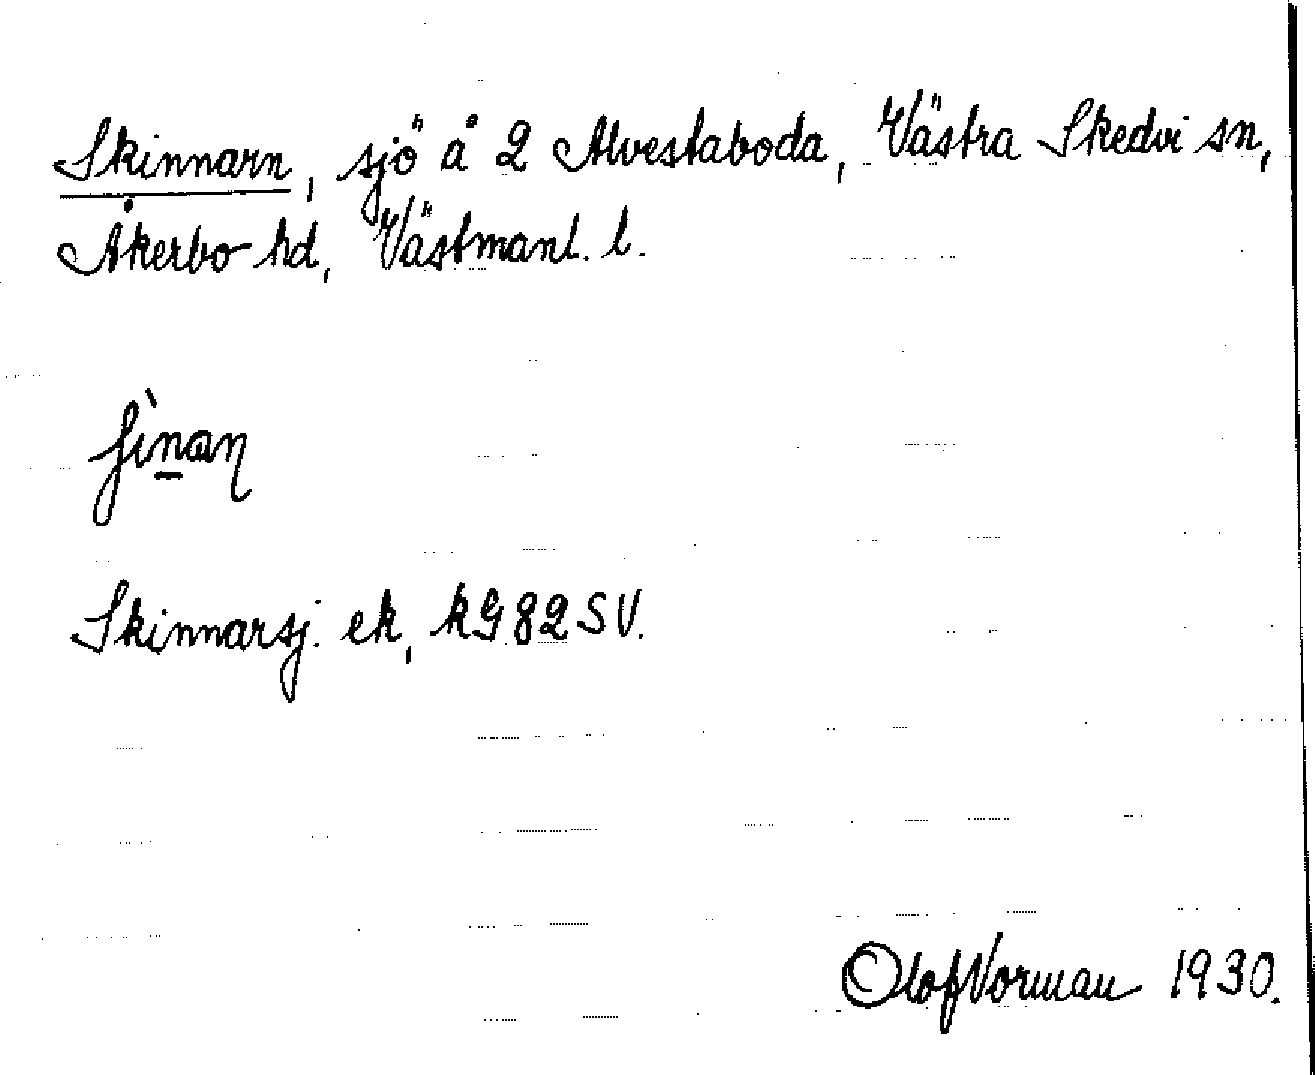 Skinnarn, sjö å 2 Alvestaboda, Västra Skedvi sn,
Åkerbo hd, Västmanl. l.
ʃìn̲an̡
Skinnarsj. ek, kG 82 SV.
Olof Norman 1930.